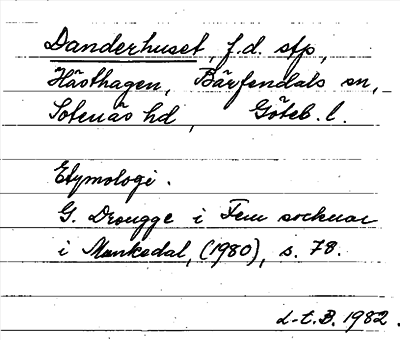 Danderhuset, f.d. stp,
Hästhagen, Bärfendals sn,
Sotenäs hd, Göteb. l.
Etymologi.
G. Drougge i Fem socknar
i Munkedal, (1980), s. 78.
L-t.B. 1982.